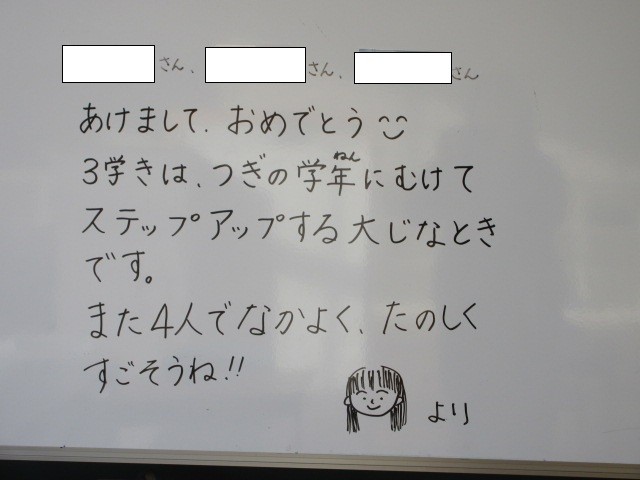 さん、 さん、 さん
あけまして、おめでとう
ねん
3学きは、つぎの学年にむけて
ステップアップする大じなとき
です。
また4人でなかよく、たのしく
すごそうね!!
より